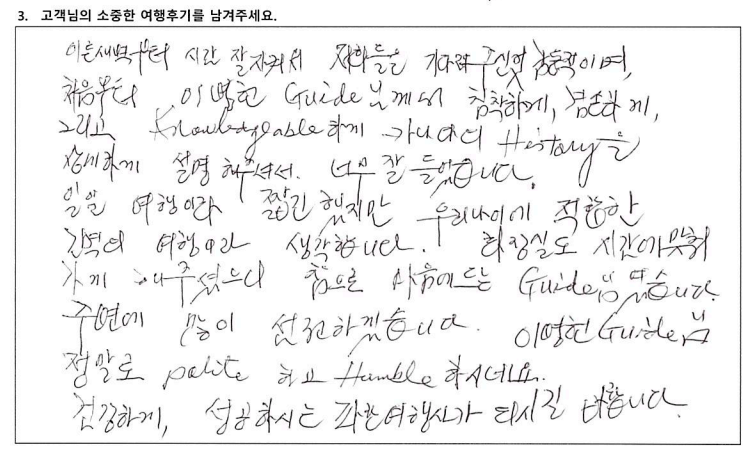 3. 고객님의 소중한 여행후기를 남겨주세요.
이른새벽부터 시간 잘지켜서 저희들을 기다려주신것 감동적이며,
처음부터 이명헌 Guide님께서 침착하게, 겸손하게,
그리고 Knowledgeable하게 캐나다의 History을
상세하게 설명해주셔서. 너무 잘 들었습니다.
일일 여행이라 짧긴 했지만 우리나이에 적합한
간격의 여행이라 생각합니다. 화장실도 시간에맞춰
가게 해주셨으니 참으로 마음에드는 Guide님 였습니다.
주변에 많이 선전하겠습니다. 이명헌 Guide님
정말로 polite 하고 Humble 하시네요.
건강하게, 성공하시는 여행사가 되시길 바랍니다.